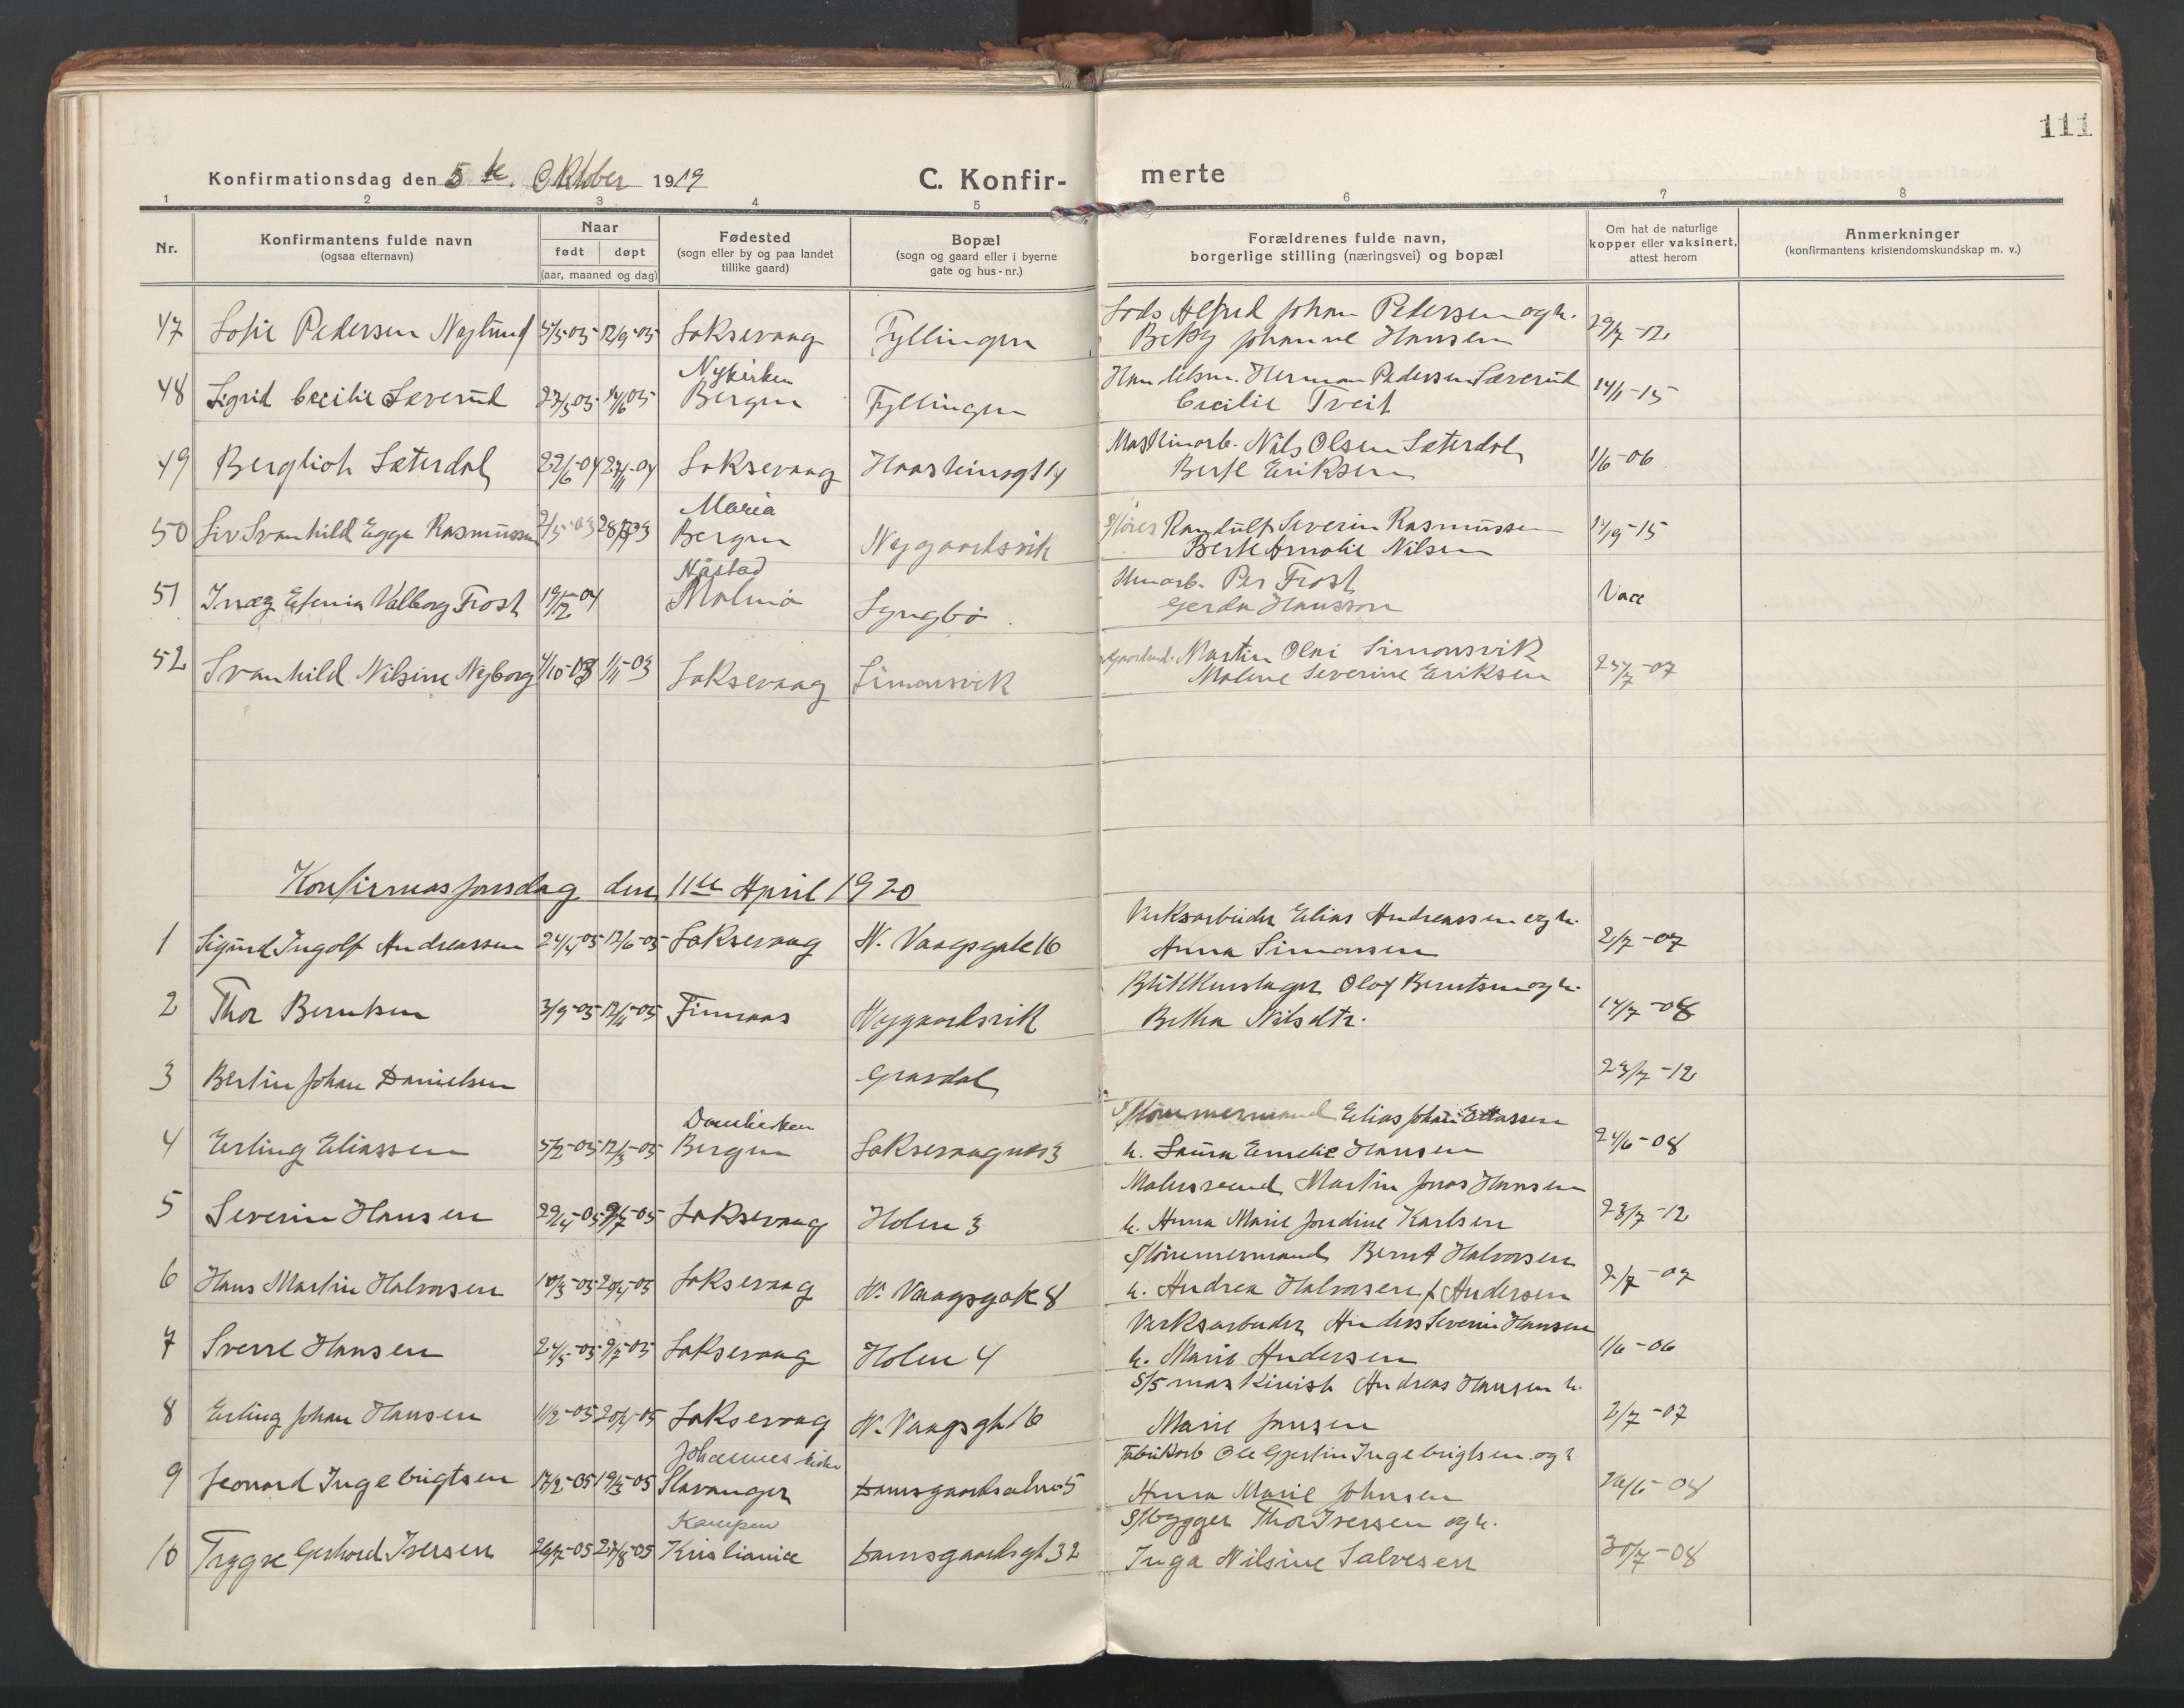 111
Konfirmationsdag den 5te. Oktober 1919
C. Konfir- merte
1 2 3 4 5 6 7 8
Nr.
Konfirmantens fulde navn
(ogsaa efternavn)
Naar
født døpt
(aar, maaned og dag)
Fødested
(sogn eller by og paa landet
tillike gaard)
Bopæl
(sogn og gaard eller i byerne
gate og hus-nr.)
Forældrenes fulde navn,
borgerlige stilling (næringsvei) og bopæl
Om hat de naturlige
kopper eller vaksinert,
attest herom
Anmerkninger
(konfirmantens kristendomskundskap m. v.)
Lods Alfred Johan Pedersen og h.
47 Sofie Pedersen Nylund 5/5-05 12/9-05 Laksevaag Fyllingen Betzy Johanne Hansen 29/7-12
Nykirken Handelsm. Herman Pedersen Sæverud
48 Sigrid Cecilie Sæverud 27/3-05 14/6 05 Bergen Fyllingen Cecilie Tveit 14/1-15
Maskinarb. Nils Olsen Sæterdal
49 Bergliot Sæterdal 22/6-04 27/11-04 Laksevaag Haasteinsgt 14 Berte Eriksen 1/6-06
Maria S/tøres Randulf Severin Rasmussen
50 Liv Svanhild Egge Rasmussen 2/5-03 Bergen Nygaardsvik Berte Amalie Nilsen 11/9-15
Nåstad Per Frost
51 Efenia Valborg Frost 19/12-04 Malmø Lyngbø. Gerda Hansson Vacc
Martin Olai Simonsvik
52 Svanhild Nilsine Nyborg 4/10-03 1/11-03 Laksevaag Simonsvik Malene Severine Eriksen 24/7-07
Konfirmasjonsdag den 11te April 1920
Verksarbeider Elias Andreassen og h.
1 Sigurd Ingolf Andreassen 24/4-05 12/6-05 Laksevaag N. Vaagsgate 16 Anna Simonsen 2/7-07
Blikkenslager Olaf Berntsen og h.
2 Thor Berntsen 3/9-05 12/11-05 Finnaas Nygaardsvik Betha Nilsdtr. 14/7-08
3 Bertin Johan Danielsen Grasdal 23/7-12
Domkirken S/tømmermand Elias Johan Eliassen
4 Erling Eliassen 5/2-05 12/3-05 Bergen Laksevaagnes 3 h. Laura Emelie Hansen 24/6-08
Malersvend Martin Jonas Hansen
5 Severin Hansen 29/4-05 9/7-05 Laksevaag Holen 3 h. Anna Marie Jondine Karlsen 23/7-12
S/tømmermand Bernt Halvorsen
6 Hans Martin Halvorsen 10/3-05 20/4-05 Laksevaag N. Vaagsgate 8 h. Andrea Halvorsen f. Andersen 2/7-07
Verksarbeider Anders Severin Hansen
7 Sverre Hansen 24/5-05 9/7-05 Laksevaag Holen 4 h. Marie Andersen 1/6-06
S/S maskinist Andreas Hansen h.
8 Erling Johan Hansen 11/2-05 20/4-05 Laksevaag N. Vaagsgt 16 Marie Jansen 2/7-07
Johannes kirke Fabrikarb Ole Gjertin Ingebrigtsen og h
9 Leonard Ingebrigtsen 17/2-05 19/3-05 Stavanger Damsgaardsalm 5 Anna Marie Johnsen 24/6-08
Kampen S/bygger Thor Iversen og h.
10 Trygve Gerhard Iversen 29/7-05 27/8-05 Kristiania Damsgaardsgt 32 Inga Nilsine Salvesen 30/7-08